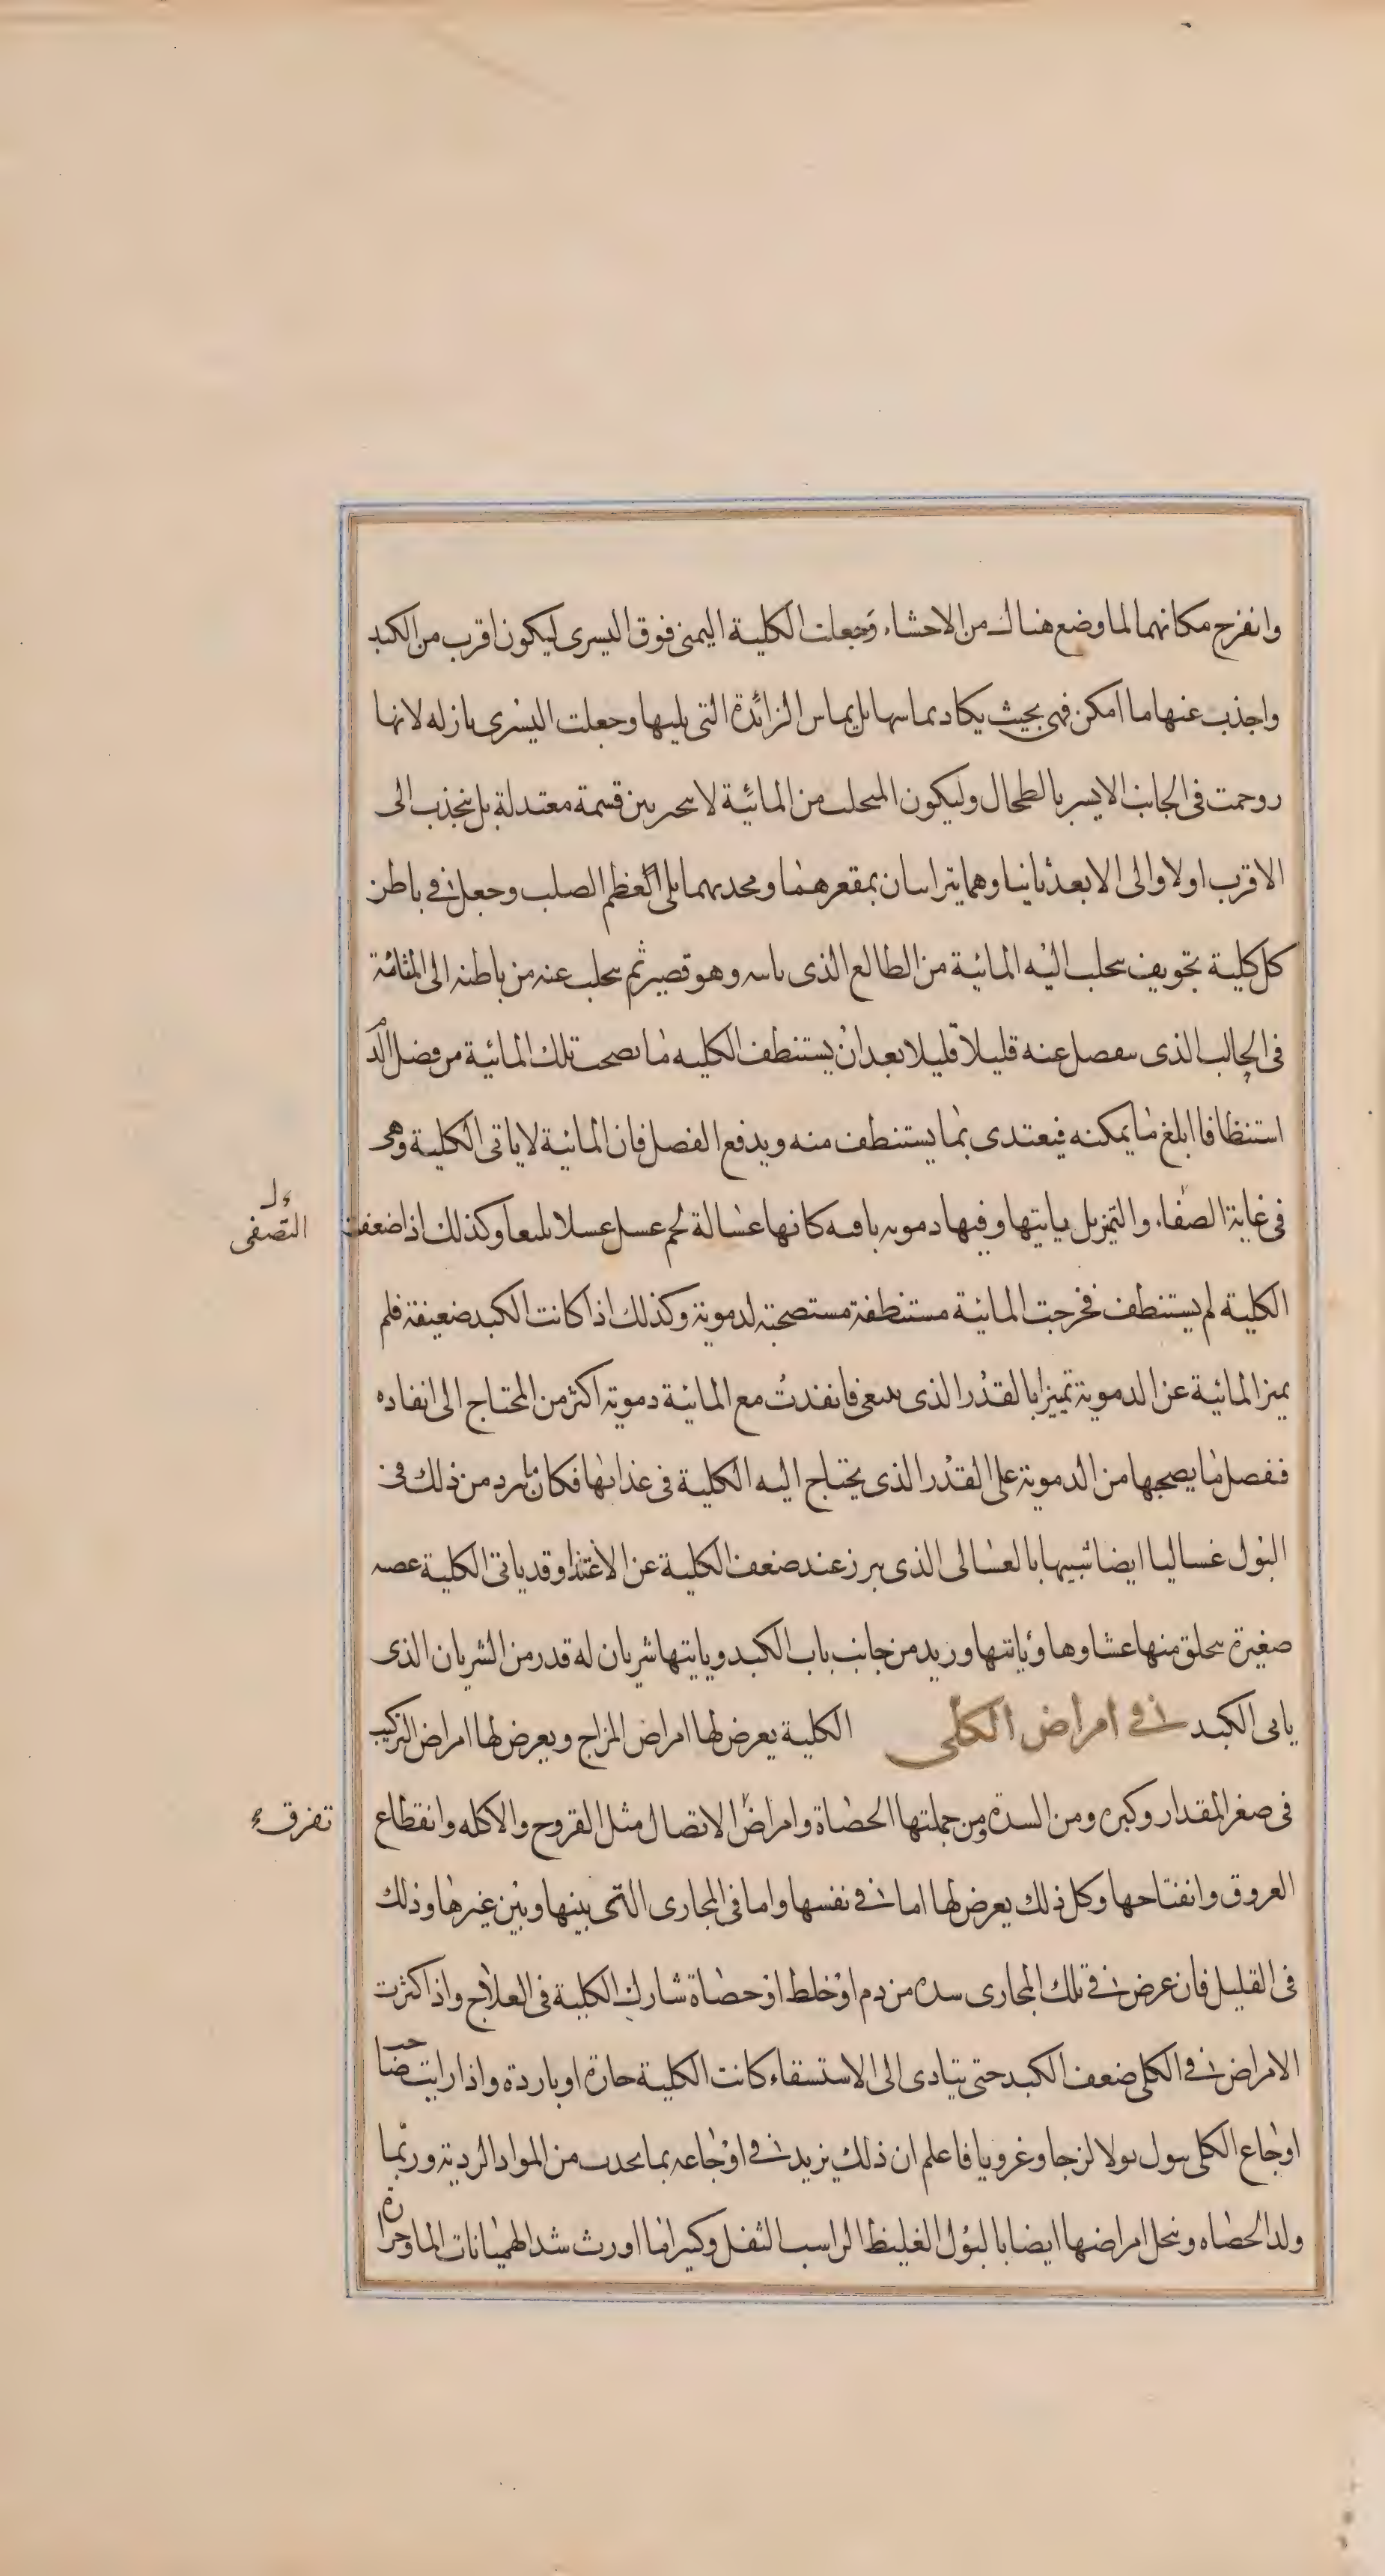 وانفرج مكانهما لما وضع هناك من الاحشاء وجعلت الكلية اليمنى فوق اليسرى ليكون اقرب من الكبد
واجذب عنها ما امكن فهى بحيث يكاد يماسها بل يماس الزائدة التى يليها وجعلت اليسرى نازله لانها
زوحمت فى الجانب الايسر بالطحال وليكون المتحلب من المائية لا يتحير بين قسمة معتدلة بل ينجذب الى
الاقرب اولا والى الابعد ثانيا وهما يتراسان بمقعرهما ومحدبهما يلى العظم الصلب وجعل فى باطن
كل كلية تجويف يتحلب اليه المائية من الطالع الذى ياتيه وهو قصير ثم يتحلب عنه من باطنه الى المثانة
فى الحالب الذى ينفصل عنه قليلا قليلا بعد ان يستنظف الكليه ما يصحب تلك المائية من فضل الدم
استنظافا ابلغ ما يمكنه فيغتدى بما يستنظف منه ويدفع الفضل فان المائية لا ياتى الكلية وهى
فى غاية الصفاء والتميز بل ياتيها وفيها دمويه باقيه كانها غسالة لحم غسل غسلا بليغا وكذلك اذا ضعفت
التصفى
الكلية لم يستنظف فخرجت المائية مستنظفة مستصحبة لدموية وكذلك اذا كانت الكبد ضعيفة فلم
يميز المائية عن الدموية تمييزا بالقدر الذى ينبغى فانفذت مع المائية دموية اكثر من المحتاج الى انفاده
ففضل ما يصحبها من الدموية على القدر الذى يحتاج اليه الكلية فى غذائها فكان ما يبرد من ذلك فى
البول غساليا ايضا شبيها بالغسالى الذى يبرز عند ضعف الكلية عن الاغتذا وقد ياتى الكلية عصبه
صغيرة يتخلق منها غشاوها وياتيها وريد من جانب باب الكبد وياتيها شريان له قدر من الشريان الذى
ياتى الكبد فى امراض الكلى الكلية يعرض لها امراض المزاج ويعرض لها امراض التركيب
فى صغر المقدار وكبره ومن السدة ومن جملتها الحصاة وامراض الاتصال مثل القروح والاكله وانقطاع
تفرق
العروق وانفتاحها وكل ذلك يعرض لها اما فى نفسها واما فى المجارى التى بينها وبين غيرها وذلك
فى القليل فان عرض فى تلك المجارى سده من دم او خلط او حصاة شارك الكلية فى العلاج واذا كثرت
الامراض فى الكلى ضعف الكبد حتى يتادى الى الاستسقاء كانت الكلية حارة او باردة واذا رايت صاحب
اوجاع الكلى يبول بولا لزجا وغرويا فاعلم ان ذلك يزيد فى اوجاعه بما يحدث من المواد الردية وربما
ولد الحصاه وينحل امراضها ايضا بالبول الغليظ الراسب الثفل وكثيرا ما اورث شد الهميانات الما وحرارة